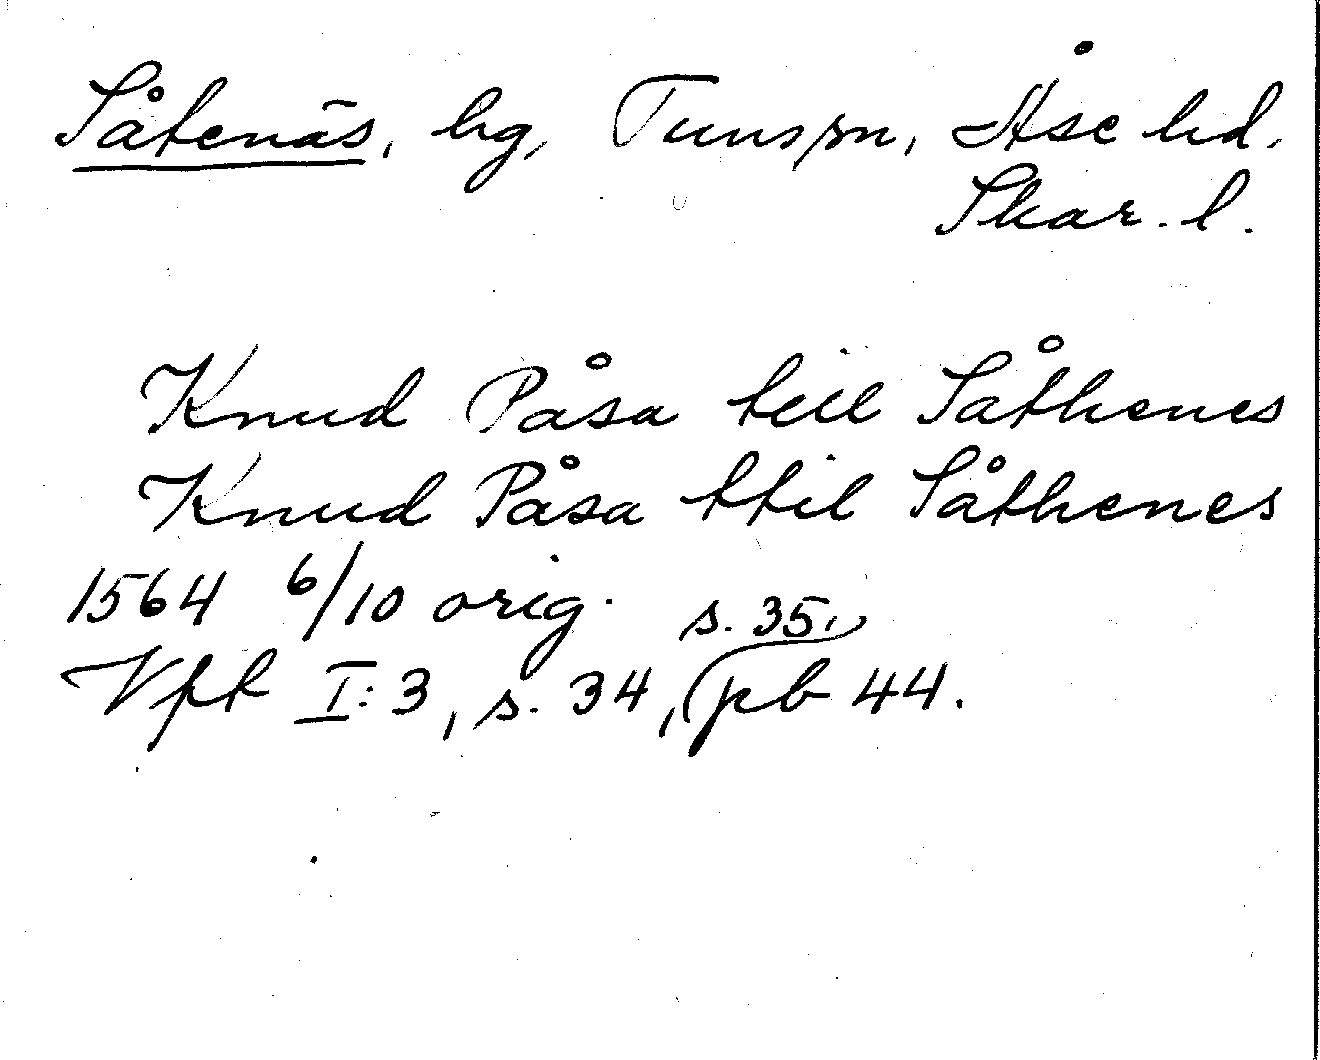 Såtenäs, hg, Tuns sn, Åse hd,
Skar. l.
Knud Påsa till Såthenes
Knud Påsa ttil Såthenes
1564 6/10 orig. s. 35,
Vfk I:3, s. 34, pb 44.